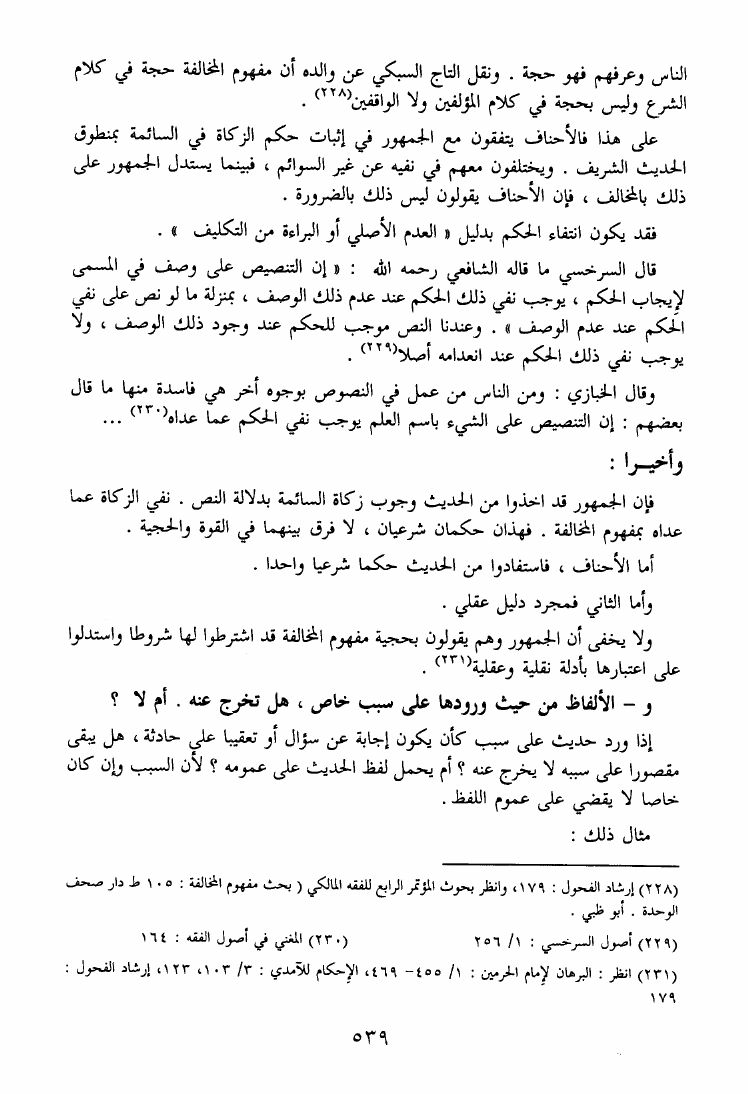 الناس وعرفهم فهو حجة . ونقل التاج السبكي عن والده أن مفهوم المخالفة حجة في كلام
الشرع وليس بحجة في كلام المؤلفين ولا الواقفين(٢٢٨) .
على هذا فالأحناف يتفقون مع الجمهور في إثبات حكم الزكاة في السائمة بمنطوق
الحديث الشريف . ويختلفون معهم في نفيه عن غير السوائم ، فبينما يستدل الجمهور على
ذلك بالمخالف ، فإن الأحناف يقولون ليس ذلك بالضرورة .
فقد يكون انتفاء الحكم بدليل « العدم الأصلي أو البراءة من التكليف » .
قال السرخسي ما قاله الشافعي رحمه الله : « إن التنصيص على وصف في المسمى
لإيجاب الحكم ، يوجب نفي ذلك الحكم عند عدم ذلك الوصف ، بمنزلة ما لو نص على نفي
الحكم عند عدم الوصف » . وعندنا النص موجب للحكم عند وجود ذلك الوصف ، ولا
يوجب نفي ذلك الحكم عند انعدامه أصلا(٢٢٩) .
وقال الخبازي : ومن الناس من عمل في النصوص بوجوه أخر هي فاسدة منها ما قال
بعضهم : إن التنصيص على الشيء باسم العلم يوجب نفي الحكم عما عداه(٢٣٠) ...
وأخيـرا :
فإن الجمهور قد اخذوا من الحديث وجوب زكاة السائمة بدلالة النص . نفي الزكاة عما
عداه بمفهوم المخالفة . فهذان حكمان شرعيان ، لا فرق بينهما في القوة والحجية .
أما الأحناف ، فاستفادوا من الحديث حكما شرعيا واحدا .
وأما الثاني فمجرد دليل عقلي .
ولا يخفى أن الجمهور وهم يقولون بحجية مفهوم المخالفة قد اشترطوا لها شروطا واستدلوا
على اعتبارها بأدلة نقلية وعقلية(٢٣١) .
و – الألفاظ من حيث ورودها على سبب خاص ، هل تخرج عنه . أم لا ؟
إذا ورد حديث على سبب كأن يكون إجابة عن سؤال أو تعقيبا على حادثة ، هل يبقى
مقصورا على سببه لا يخرج عنه ؟ أم يحمل لفظ الحديث على عمومه ؟ لأن السبب وإن كان
خاصا لا يقضي على عموم اللفظ .
مثال ذلك :
(٢٢٨) إرشاد الفحول : ١٧٩، وانظر بحوث المؤتمر الرابع للفقه المالكي ( بحث مفهوم المخالفة : ١٠٥ ط دار صحف
الوحدة . أبو ظبي .
(٢٢٩) أصول السرخسي : ١/ ٢٥٦ (٢٣٠) المغني في أصول الفقه : ١٦٤
(٢٣١) انظر : البرهان لإمام الحرمين : ١/ ٤٥٥– ٤٦٩، الإحكام للآمدي : ٣/ ١٠٣، ١٢٣، إرشاد الفحول :
١٧٩
٥٣٩